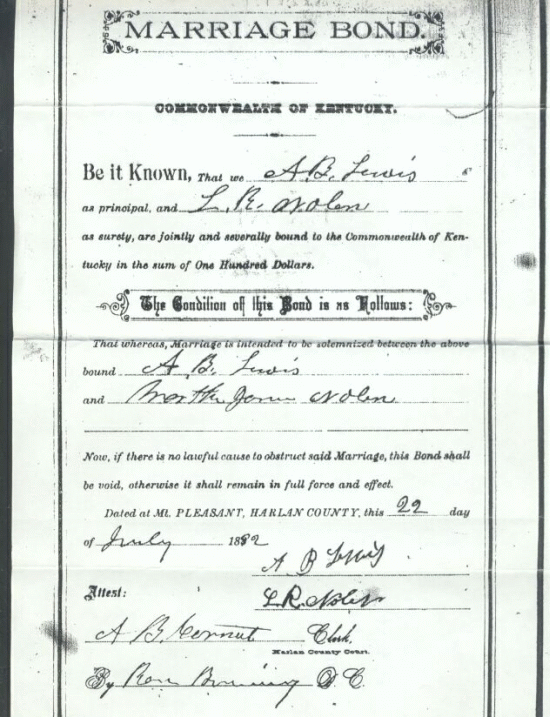 MARRIAGE BOND.
COMMONWEALTH OF KENTUCKY.
Be it Known, That we A. B. Lewis
as principal, and L. R. Nolen
as surety, are jointly and severally bound to the Commonwealth of Ken-
tucky in the sum of One Hundred Dollars.
The Condition of this Bond is as Follows:
That whereas, Marriage is intended to be solemnized between the above
bound A. B. Lewis
and Martha Jane Nolen
Now, if there is no lawful cause to obstruct said Marriage, this Bond shall
be void, otherwise it shall remain in full force and effect.
Dated at Mt. PLEASANT, HARLAN COUNTY, this 22 day
of July 1892
A B Lewis
Attest:
L R Nolen
A. B. Cornett Clerk.
Harlan County Court.
By Browning D C